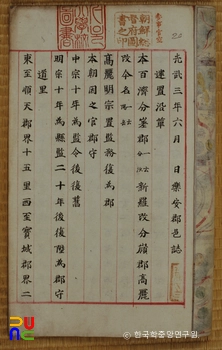 光武三年六月 日樂安郡邑誌
建置沿革
本百濟分嵯郡一云新羅改分嶺郡高麗
改今名
高麗明宗置監務後為郡
本朝因之官郡守
中宗十年為縣監令後後舊
明宗十年為縣監二十年後復陞為郡守
道里
東至順天郡界十五里西至寶城郡界二
朝鮮總督府圖書之印
© 한국학중앙연구원